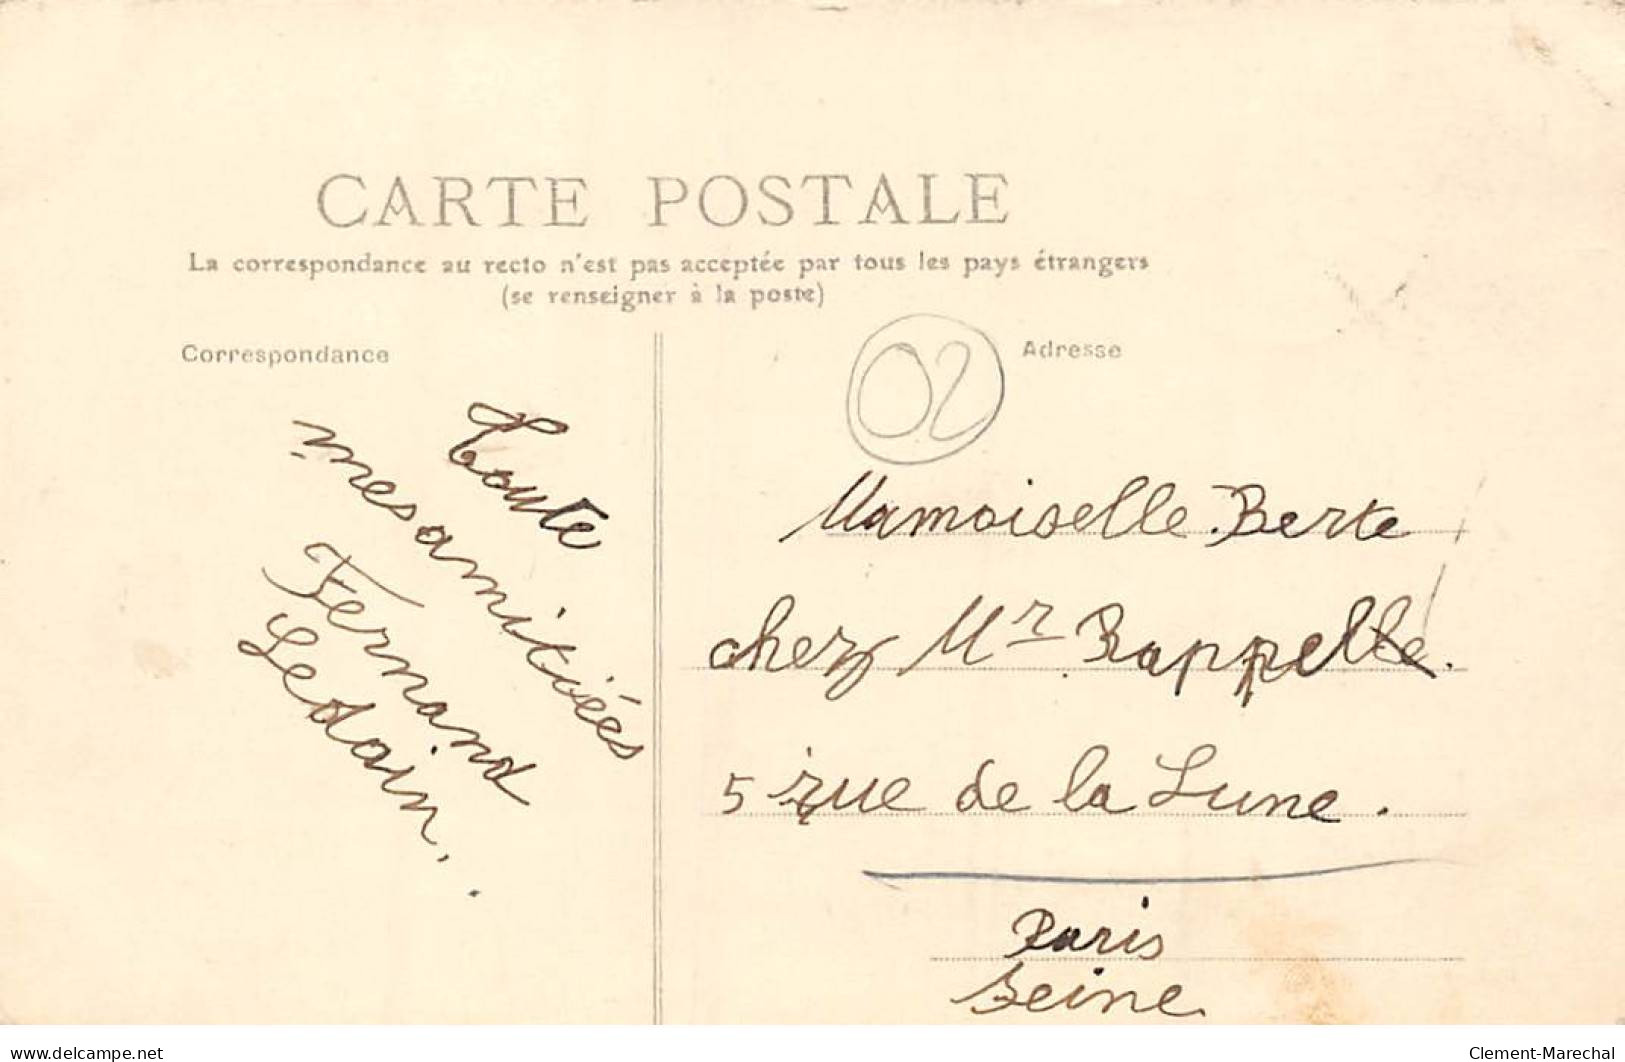 CARTE POSTALE
La correspondance au recto n'est pas acceptée par tous les pays étrangers
(se renseigner à la poste)
Correspondance
Adresse
02
Toute
mes amitiées
Fernand
Ledain.
Mamoiselle Berte
chez Mr Rappelle.
5 rue de la Lune.
Paris
Seine.
www.delcampe.net
Clement-Marechal